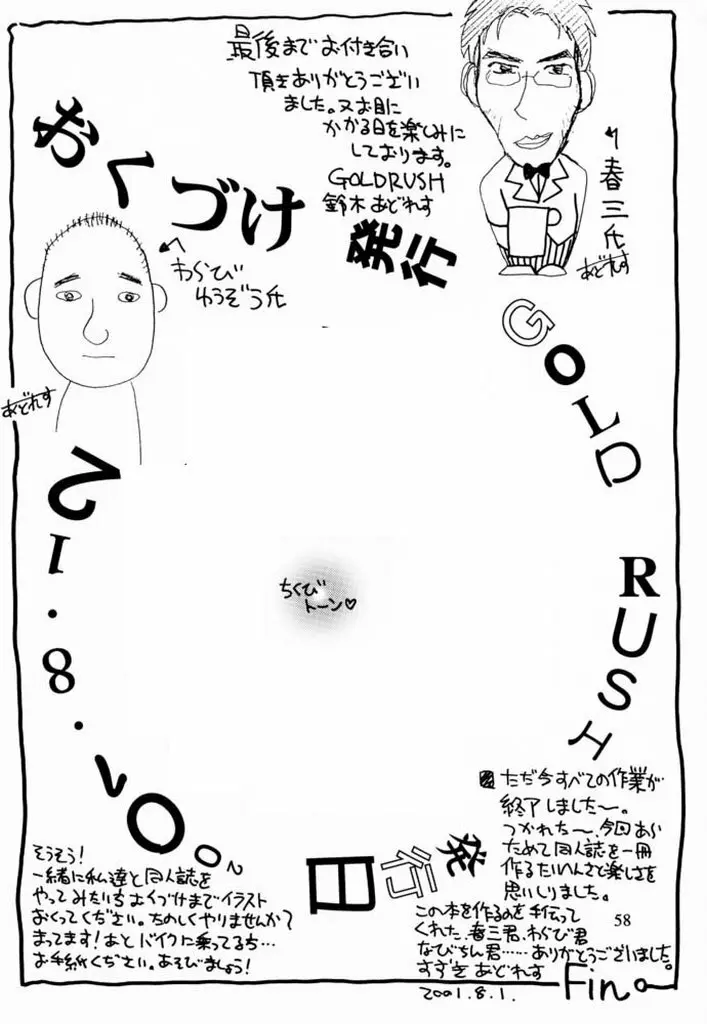 最後までお付き合い
頂きありがとうござい
ました。又お目に
かかる日を楽しみに
しております。
GOLDRUSH
鈴木あどれす
春三氏
あどれす
おくづけ
わらび
ゆうぞう氏
あどれす
発行
GOLD RUSH
発行日
2001.8.12
ちくび
トーン♡
ただ今すべての作業が
終了しました〜。
つかれた〜、今回あら
ためて同人誌を一冊
作るたいへんさと楽しさを
思いしりました。
この本を作るのを手伝って
くれた、春三君、わらび君
なびちん君……ありがとうございました。
すずき あどれす
2001.8.1.
そうそう!
一緒に私達と同人誌を
やってみたい方おくづけまでイラスト
おくってください。たのしくやりませんか?
まってます!あとバイクに乗ってる方…
お手紙ください。あそびましょう!
58
Fin。